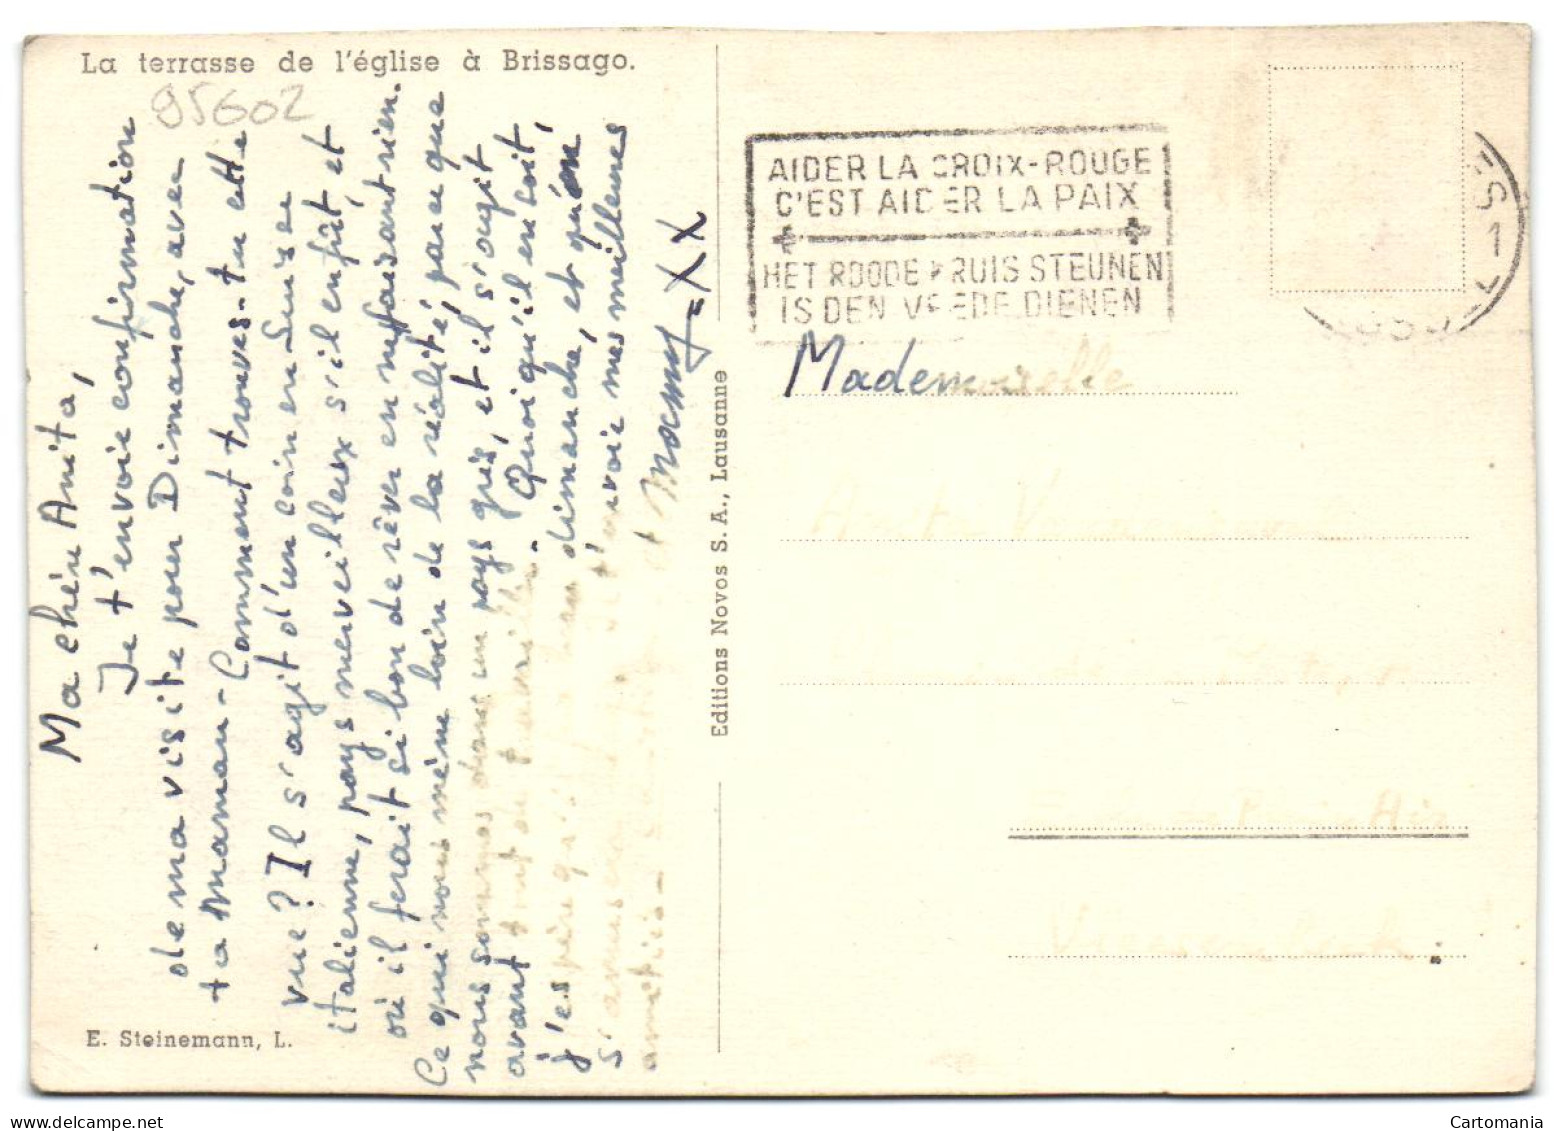 La terrasse de l'église à Brissago.
95602
Ma chère Anita,
Je t'envoie confirmation
de ma visite pour Dimanche, avec
ta maman - Comment trouves-tu cette
vue? Il s'agit d'un coin en Suisse
italienne, pays merveilleux s'il en fût, et
où il ferait si bon de rêver en ne faisant rien.
Ce qui nous mène loin de la réalité, parce que
nous sommes dans un pays gris, et il s'agit
avant tout de travailler. Quoiqu'il en soit,
j'espère qu'il fera beau dimanche, et qu'on
s'amusera t'envoie mes meilleures
amitiés - et
XX
Editions Novos S. A., Lausanne
E. Steinemann, L.
AIDER LA CROIX-ROUGE
C'EST AIDER LA PAIX
HET ROODE KRUIS STEUNEN
IS DEN VREDE DIENEN
1
Mademoiselle
Anita
Cartomania